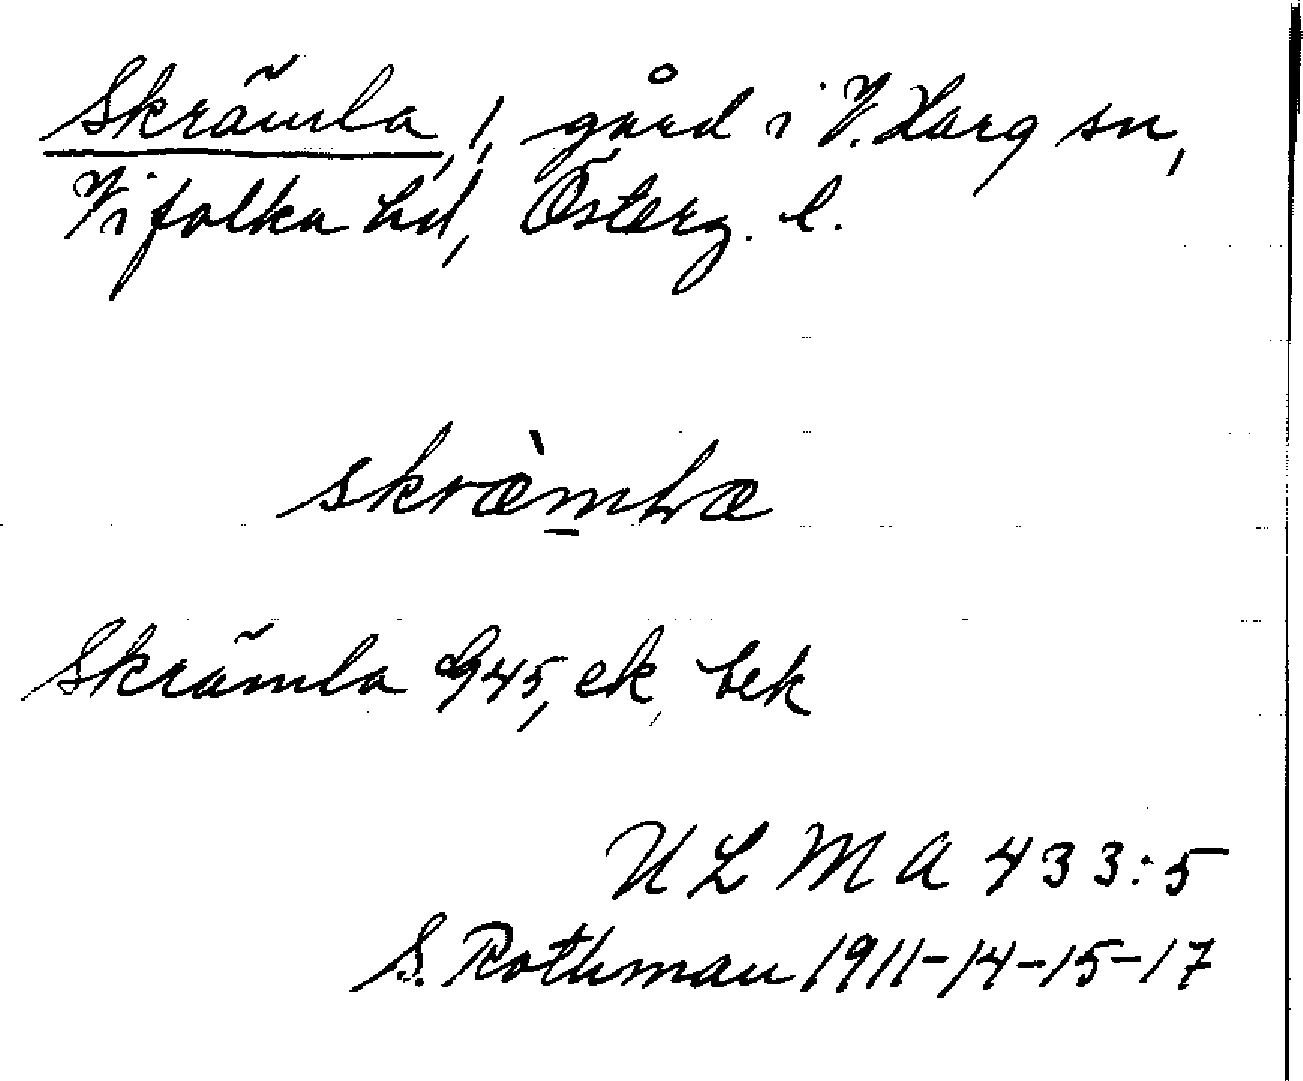 Skrämla, 1, gård i V. Harg sn,
Vifolka hd, Österg. l.
skræ̀mlæ
Skrämla G45, ek, bek
ULMA 433:5
S. Rothman 1911-14-15-17